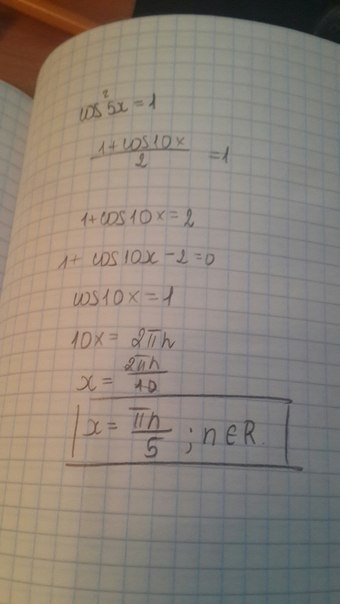 cos²5x = 1
(1+cos10x)/2 = 1
1+cos10x = 2
1+ cos10x - 2 = 0
cos10x = 1
10x = 2πn
x = 2πn/10
x = πn/5 ; n∈R